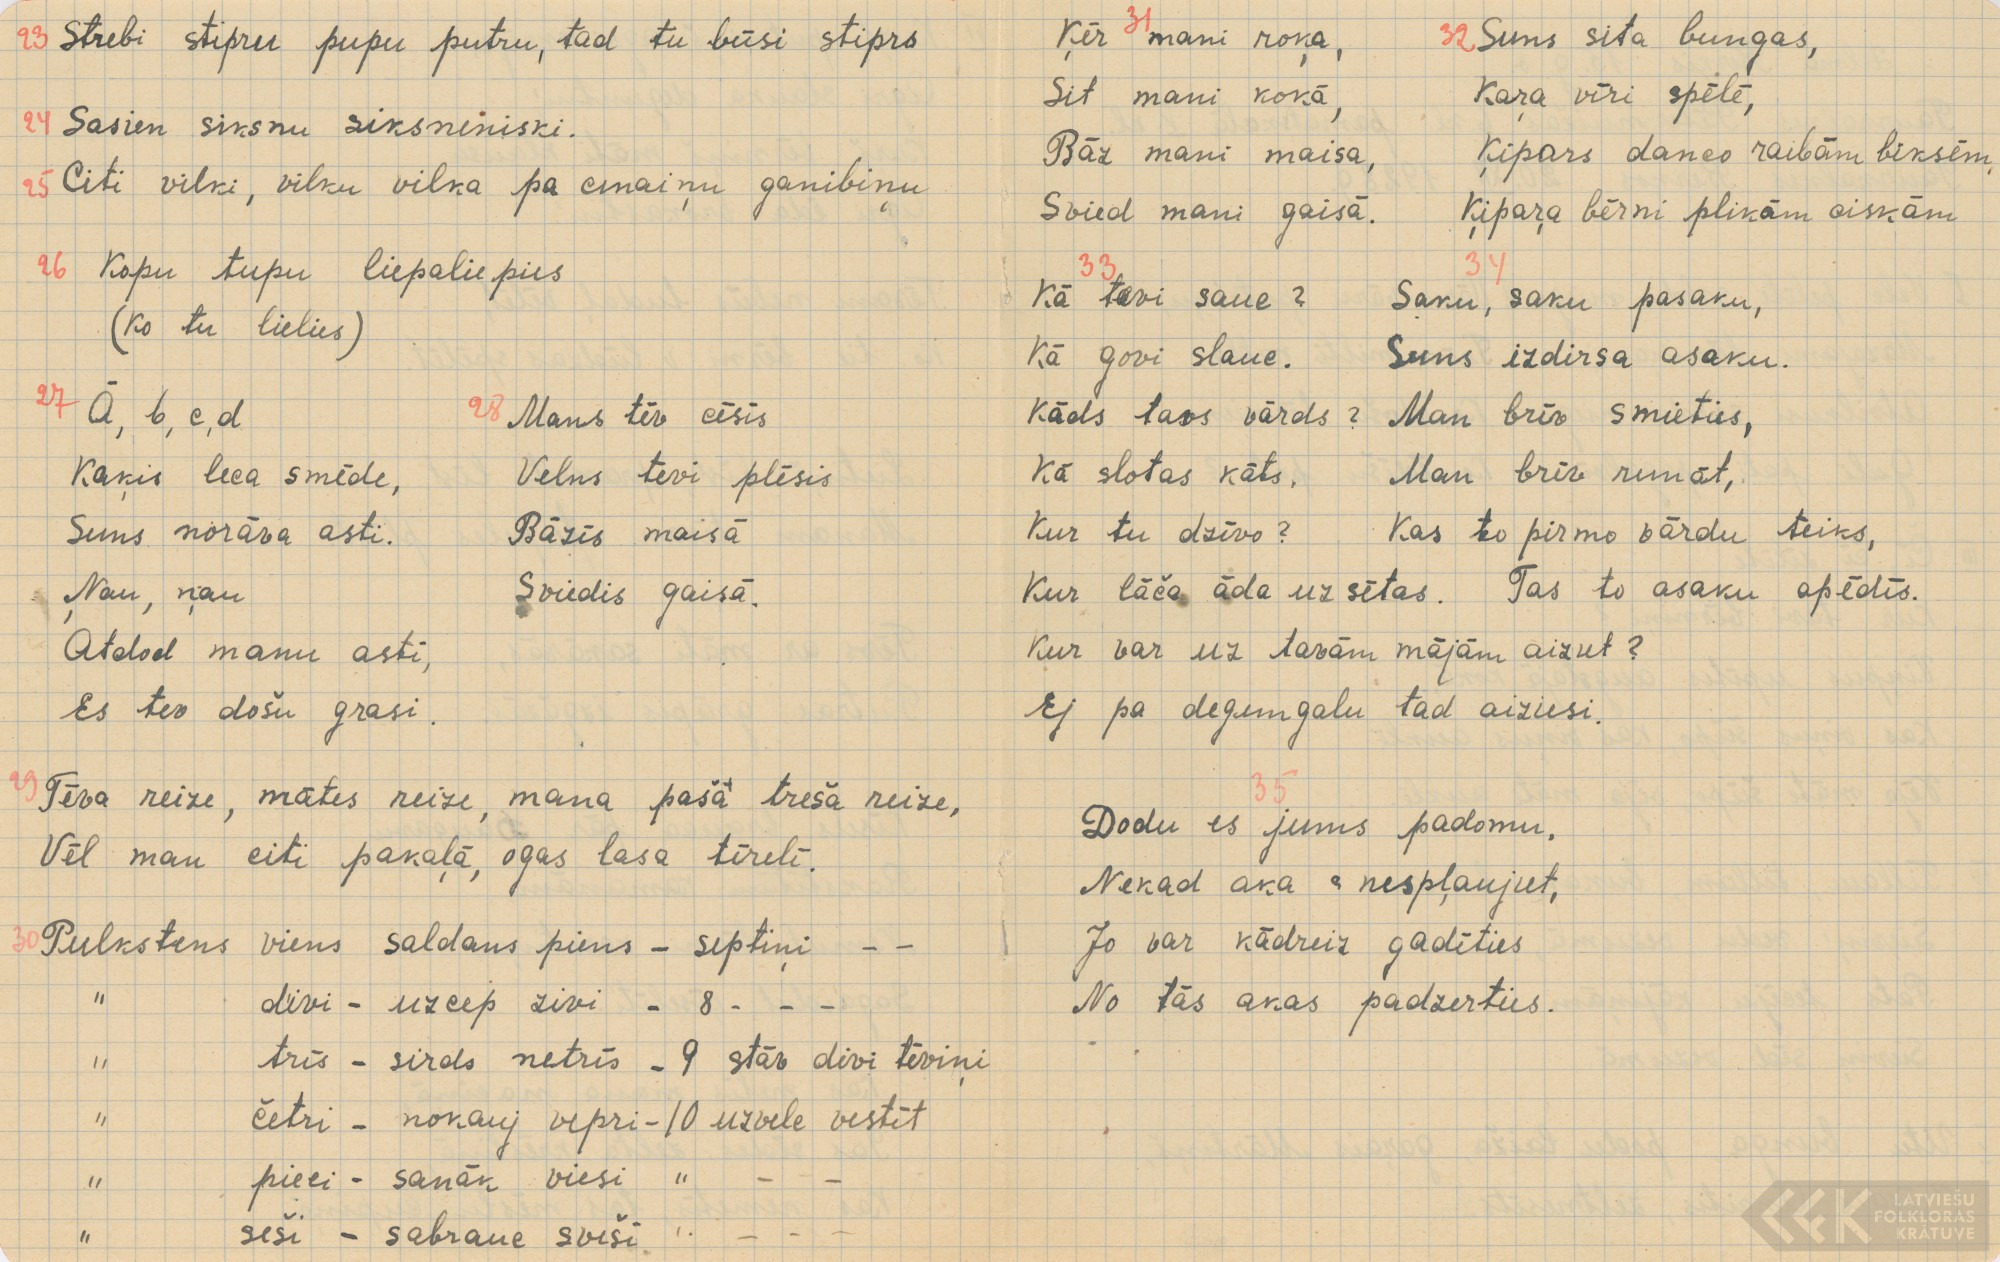 23 Strebi stipru pupu putru, tad tu būsi stiprs
24 Sasien siksnu siksneniski.
25 Citi vilki, vilku vilka pa cmaiņu ganibiņu
26 Kopu tupu liepaliepies
(Ko tu lielies)
27
Ā, b, c, d
Kaķis leca smēde,
Suns norāva asti.
Ņau, ņau
Atdod manu asti,
Es tev došu grasi.
28 Mans tēv cēsīs
Velns tevi plēsīs
Bāzīs maisā
Sviedīs gaisā.
29 Tēva reize, mātes reize, mana pašā treša reize,
Vēl man citi pakaļā, ogas lasa tīrelī.
30 Pulkstens viens saldans piens - septiņi - -
" divi - uzcep zivi - 8 - - -
" trīs - sirds netrīs - 9 stāv divi tēviņi
" četri - nokauj vepri - 10 uzvele vestīt
" pieci - sanāk viesi " - -
" seši - sabrauc sveši " - - -
31
Ķēr mani roķa,
Sit mani kokā,
Bāz mani maisa,
Svied mani gaisā.
32 Suns sita bungas,
Kaŗa vīri spēlē,
Ķipars danco raibām biksēm,
Ķipaŗa bērni plikām ciskām
33
Kā tevi sauc?
Kā govi slauc.
Kāds tavs vārds?
Kā slotas kāts.
Kur tu dzīvo?
Kur lāča āda uz sētas.
Kur var uz tavām mājām aizut?
Ej pa degumgalu tad aiziesi.
34
Saku, saku pasaku,
Suns izdirsa asaku.
Man brīv smieties,
Man brīv runāt,
Kas to pirmo vārdu teiks,
Tas to asaku apēdīs.
35
Dodu es jums padomu,
Nekad aka nespļaujut,
Jo var kādreiz gadīties
No tās akas padzerties.
LATVIEŠU
FOLKLORAS
KRĀTUVE